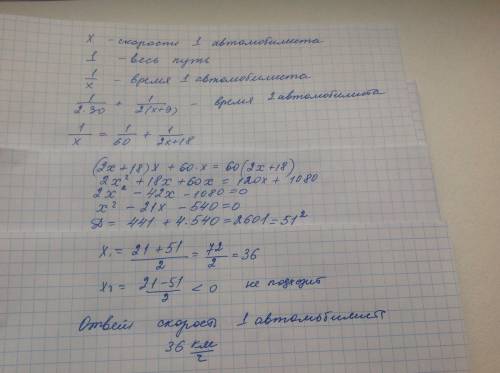 x - скорость 1 автомобилиста
1 - весь путь
1/x - время 1 автомобилиста
1/(2·30) + 1/(2(x+9)) - время 2 автомобилиста
1/x = 1/60 + 1/(2x+18)
(2x+18)x + 60·x = 60(2x+18)
2x² + 18x + 60x = 120x + 1080
2x² - 42x - 1080 = 0
x² - 21x - 540 = 0
D = 441 + 4·540 = 2601 = 51²
x₁ = (21+51)/2 = 72/2 = 36
x₂ = (21-51)/2 < 0 не подходит
Ответ скорость 1 автомобилиста
36 км/ч